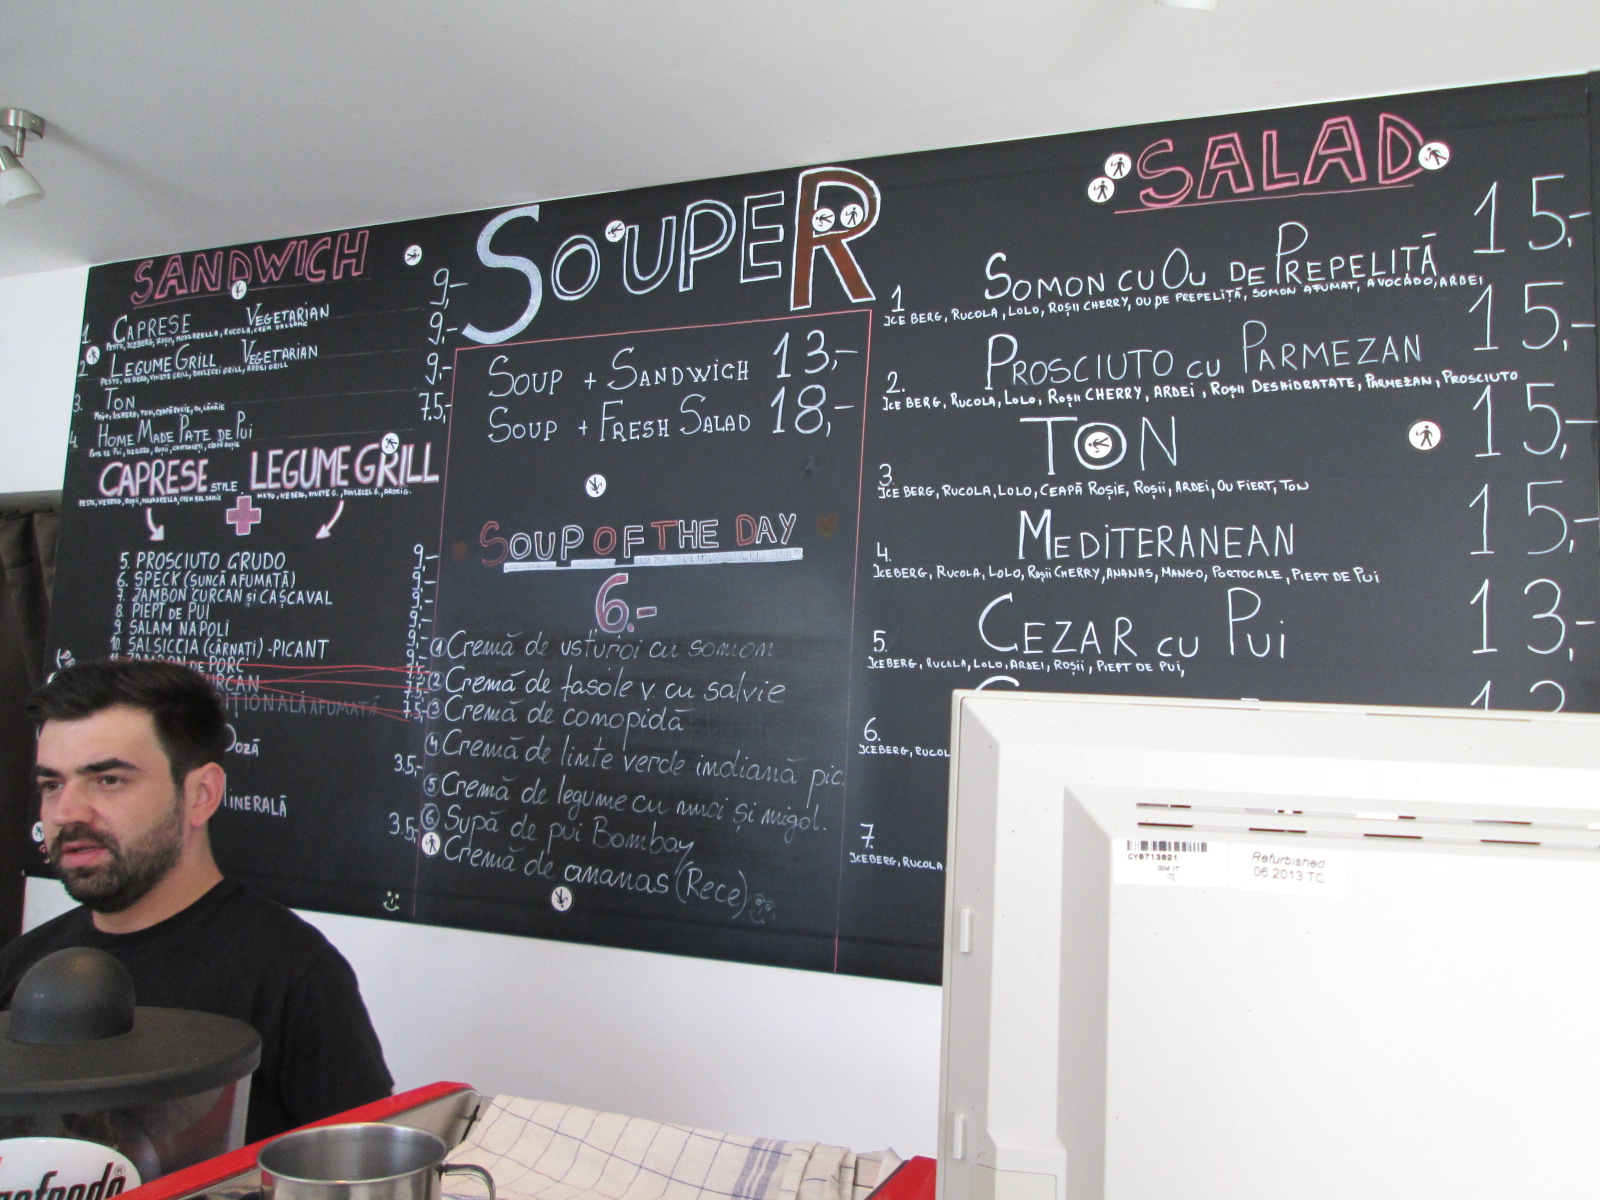 SANDWICH
1. CAPRESE VEGETARIAN 9,-
PESTO, ICEBERG, ROȘII, MOZZARELLA, RUCOLA, CREM BALSAMIC
2. LEGUME GRILL VEGETARIAN 9,-
PESTO, ICEBERG, VINETE GRILL, DOVLECEI GRILL, ARDEI GRILL
3. TON 9,-
MAYO, ICEBERG, TON, CEAPĂ ROȘIE, OU, LĂMÂIE
4. HOME MADE PATE DE PUI 7.5,-
PATE DE PUI, ICEBERG, ROȘII, CASTRAVEȚI, CEAPĂ ROȘIE
CAPRESE STYLE LEGUME GRILL
PESTO, ICEBERG, ROȘII, MOZZARELLA, CREM BALSAMIC
MAYO, ICEBERG, VINETE G., DOVLECEI G., ARDEI G.
5. PROSCIUTO GRUDO 9,-
6. SPECK (ȘUNCĂ AFUMATĂ) 9,-
7. JAMBON CURCAN ȘI CAȘCAVAL 9,-
8. PIEPT DE PUI 9,-
9. SALAM NAPOLI 9,-
10. SALSICCIA (CÂRNAȚI)-PICANT 9,-
11. JAMBON DE PORC 7.5
CURCAN 7.5,-
IȚIONALĂ AFUMATĂ 7.5,-
DOZĂ 3.5,-
INERALĂ 3.5,-
SOUPER
SOUP + SANDWICH 13,-
SOUP + FRESH SALAD 18,-
SOUP OF THE DAY
6.-
1 Cremă de usturoi cu somon
2 Cremă de fasole v. cu salvie
3 Cremă de conopidă
4 Cremă de linte verde indiană pic.
5 Cremă de legume cu nuci și migdl.
6 Supă de pui Bombay
Cremă de ananas (Rece)
SALAD
1 SOMON CU OU DE PREPELIȚĂ 15,-
ICE BERG, RUCOLA, LOLO, ROȘII CHERRY, OU DE PREPELIȚĂ, SOMON AFUMAT, AVOCADO, ARDEI
2. PROSCIUTO CU PARMEZAN 15,-
ICE BERG, RUCOLA, LOLO, ROȘII CHERRY, ARDEI, ROȘII DESHIDRATATE, PARMEZAN, PROSCIUTO
3. TON 15,-
ICE BERG, RUCOLA, LOLO, CEAPĂ ROȘIE, ROȘII, ARDEI, OU FIERT, TON
4. MEDITERANEAN 15,-
ICEBERG, RUCOLA, LOLO, ROȘII CHERRY, ANANAS, MANGO, PORTOCALE, PIEPT DE PUI
5. CEZAR CU PUI 13,-
ICEBERG, RUCOLA, LOLO, ARDEI, ROȘII, PIEPT DE PUI,
6.
ICEBERG, RUCOL
7.
ICEBERG, RUCOLA
CY8713821
Refurbished
06.2013 TC